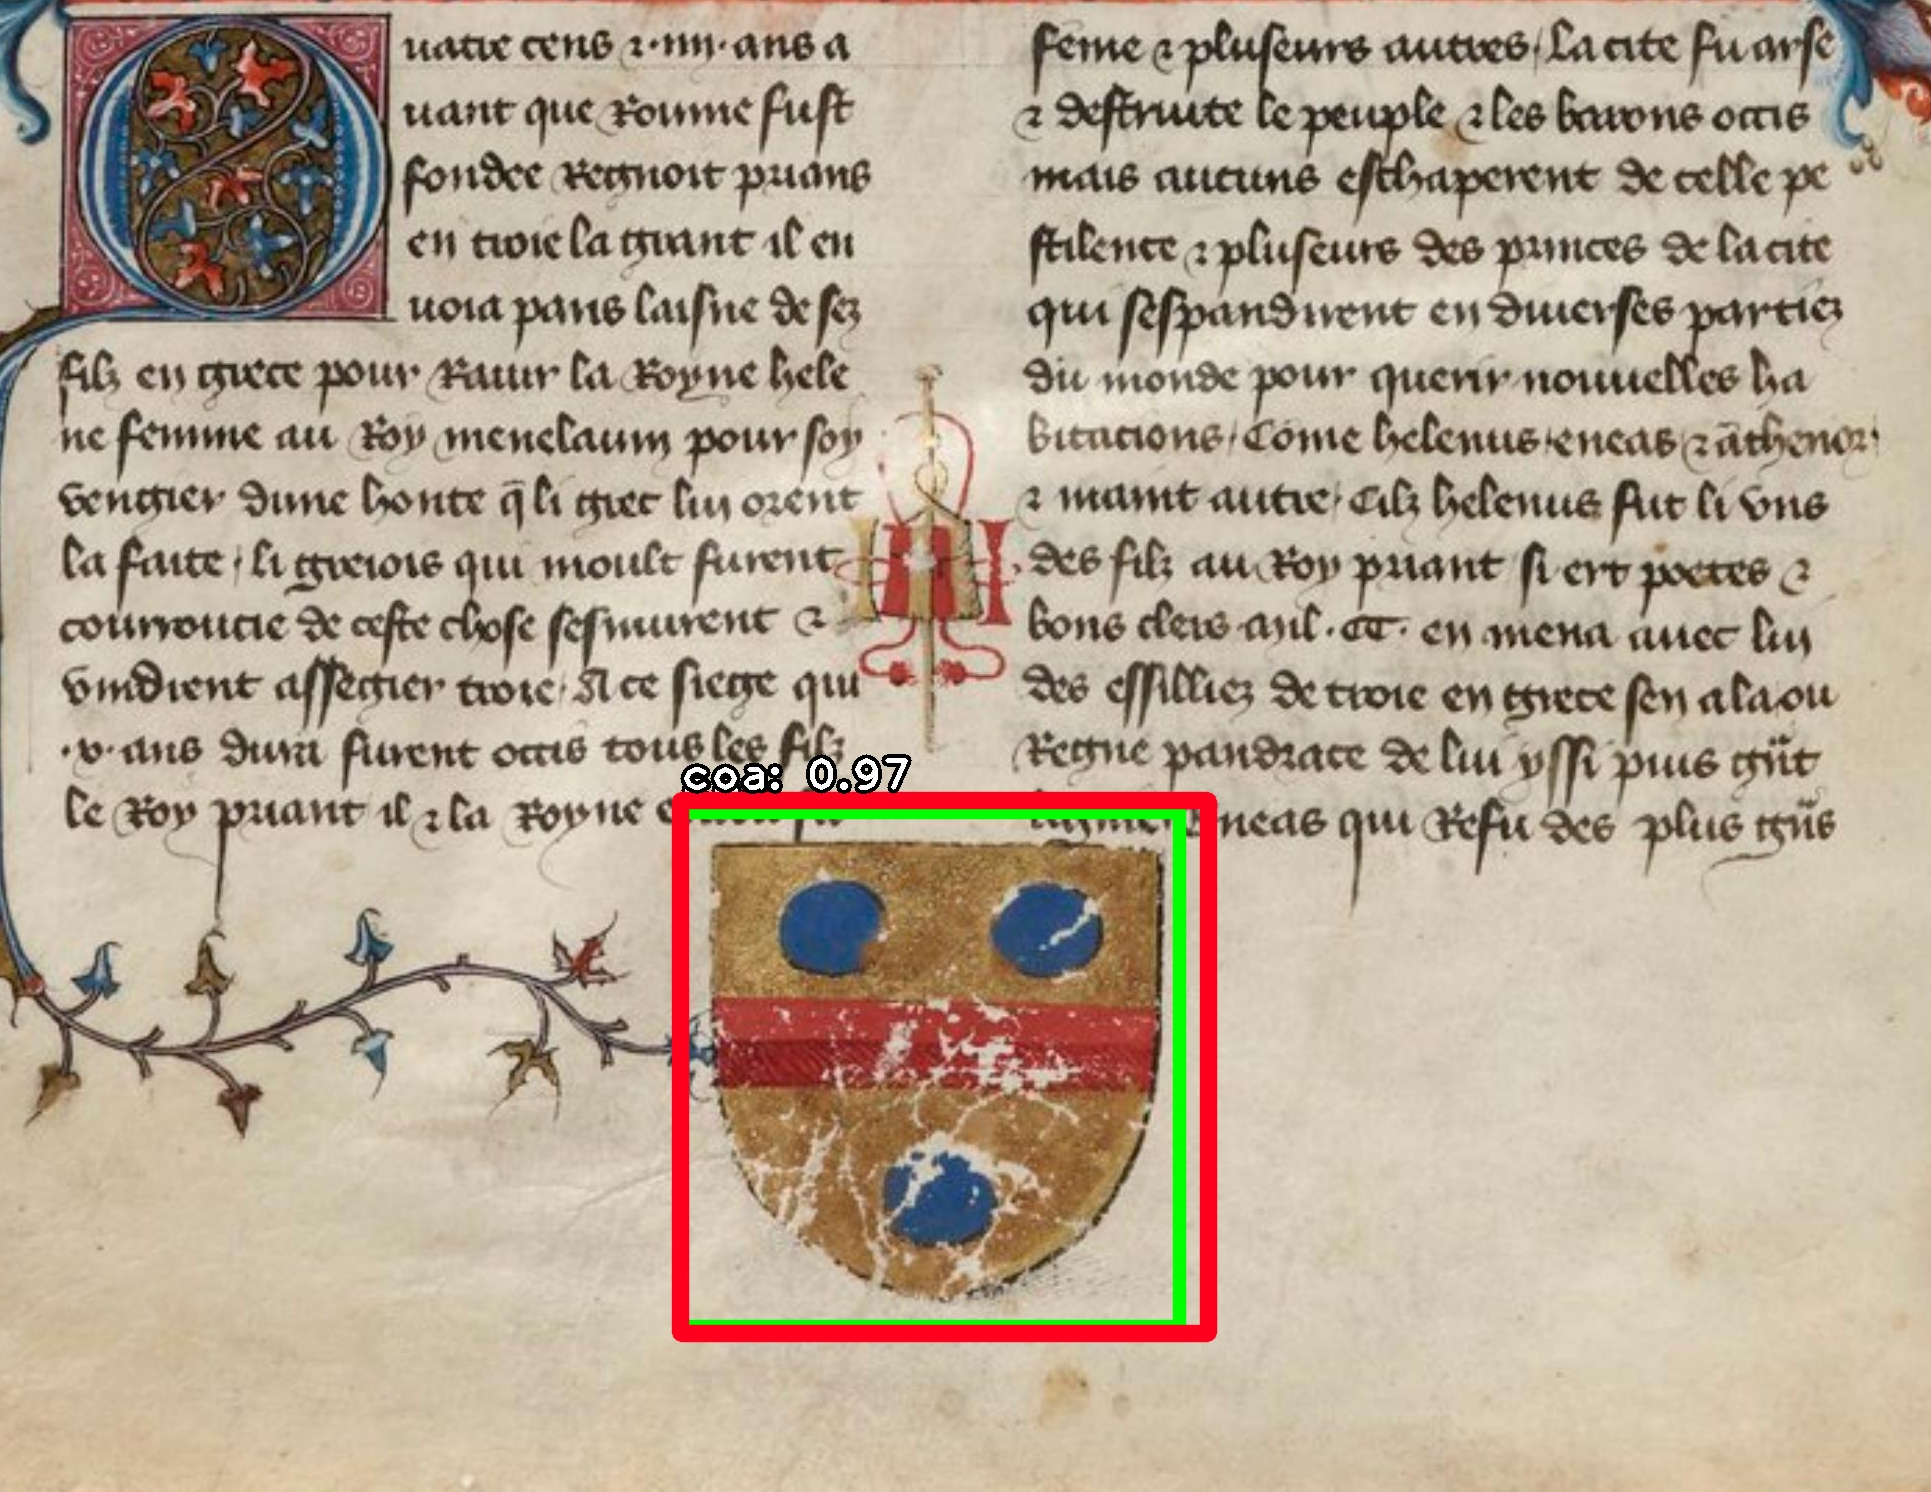 Quatre cens ⁊ .iiii. ans a
uant que Romme fust
fondee Regnoit prians
en troie la grant il en
uoia paris laisne de sez
filz en grece pour Rauir la Royne hele
ne femme au Roy menelaum pour soy
vengier dune honte q̄ li grec lui orent
la faite / li greiois qui moult furent
courroucie de ceste chose sesmurent ⁊
vindrent assegier troie / A ce siege qui
.v. ans dura furent occis tous les filz
le Roy priant il ⁊ la Royne
feme ⁊ pluseurs autres / La cite fu arse
⁊ destruite le peuple ⁊ les barons occis
mais aucuns eschaperent de celle pe
stilence ⁊ pluseurs des princes de la cite
qui sespandirent en diuerses partiez
du monde pour querir nouuelles ha
bitacions / Cōme helenus / eneas ⁊ āthenor /
⁊ maint autre / Cilz helenus fut li vns
des filz au Roy priant si ert poetes ⁊
bons clers en mena auec lui
des essilliez de troie en grece sen ala ou
Regne pandrace de lui yssi puis
eneas qui Refu des plus
coa: 0.97